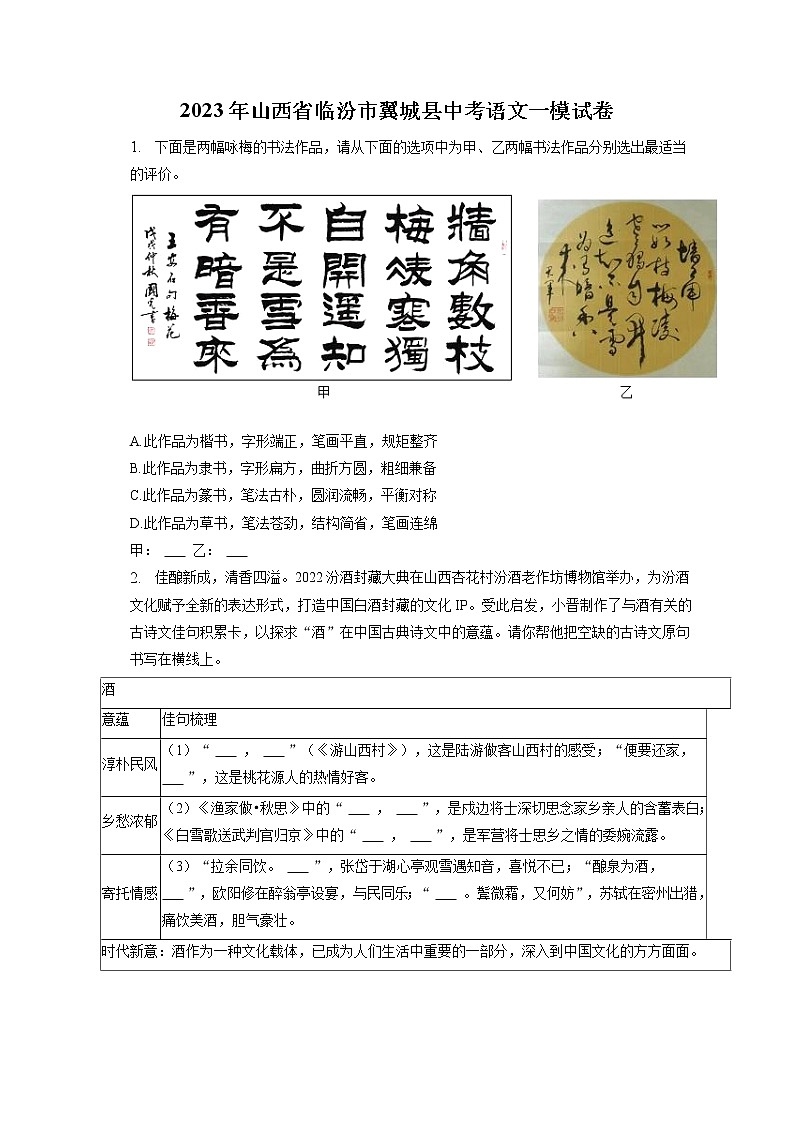 2023 年山西省临汾市翼城县中考语文一模试卷
1. 下面是两幅咏梅的书法作品，请从下面的选项中为甲、乙两幅书法作品分别选出最适当
的评价。
牆角數枝
梅凌寒獨
自開遥知
不是雪為
有暗香來
王安石句梅花
戊戌仲秋
甲
墙角
数枝梅凌
寒独自开
遥知不是雪
为有暗香
来
乙
A.此作品为楷书，字形端正，笔画平直，规矩整齐
B.此作品为隶书，字形扁方，曲折方圆，粗细兼备
C.此作品为篆书，笔法古朴，圆润流畅，平衡对称
D.此作品为草书，笔法苍劲，结构简省，笔画连绵
甲： ___ 乙： ___
2. 佳酿新成，清香四溢。2022 汾酒封藏大典在山西杏花村汾酒老作坊博物馆举办，为汾酒
文化赋予全新的表达形式，打造中国白酒封藏的文化 IP。受此启发，小晋制作了与酒有关的
古诗文佳句积累卡，以探求“酒”在中国古典诗文中的意蕴。请你帮他把空缺的古诗文原句
书写在横线上。
酒
意蕴 佳句梳理
淳朴民风 （1）“ ___ ， ___ ”（《游山西村》），这是陆游做客山西村的感受；“便要还家，
___ ”，这是桃花源人的热情好客。
乡愁浓郁 （2）《渔家傲•秋思》中的“ ___ ， ___ ”，是戍边将士深切思念家乡亲人的含蓄表白；
《白雪歌送武判官归京》中的“ ___ ， ___ ”，是军营将士思乡之情的委婉流露。
寄托情感 （3）“拉余同饮。 ___ ”，张岱于湖心亭观雪遇知音，喜悦不已；“酿泉为酒，
___ ”，欧阳修在醉翁亭设宴，与民同乐；“ ___ 。鬓微霜，又何妨”，苏轼在密州出猎，
痛饮美酒，胆气豪壮。
时代新意：酒作为一种文化载体，已成为人们生活中重要的一部分，深入到中国文化的方方面面。